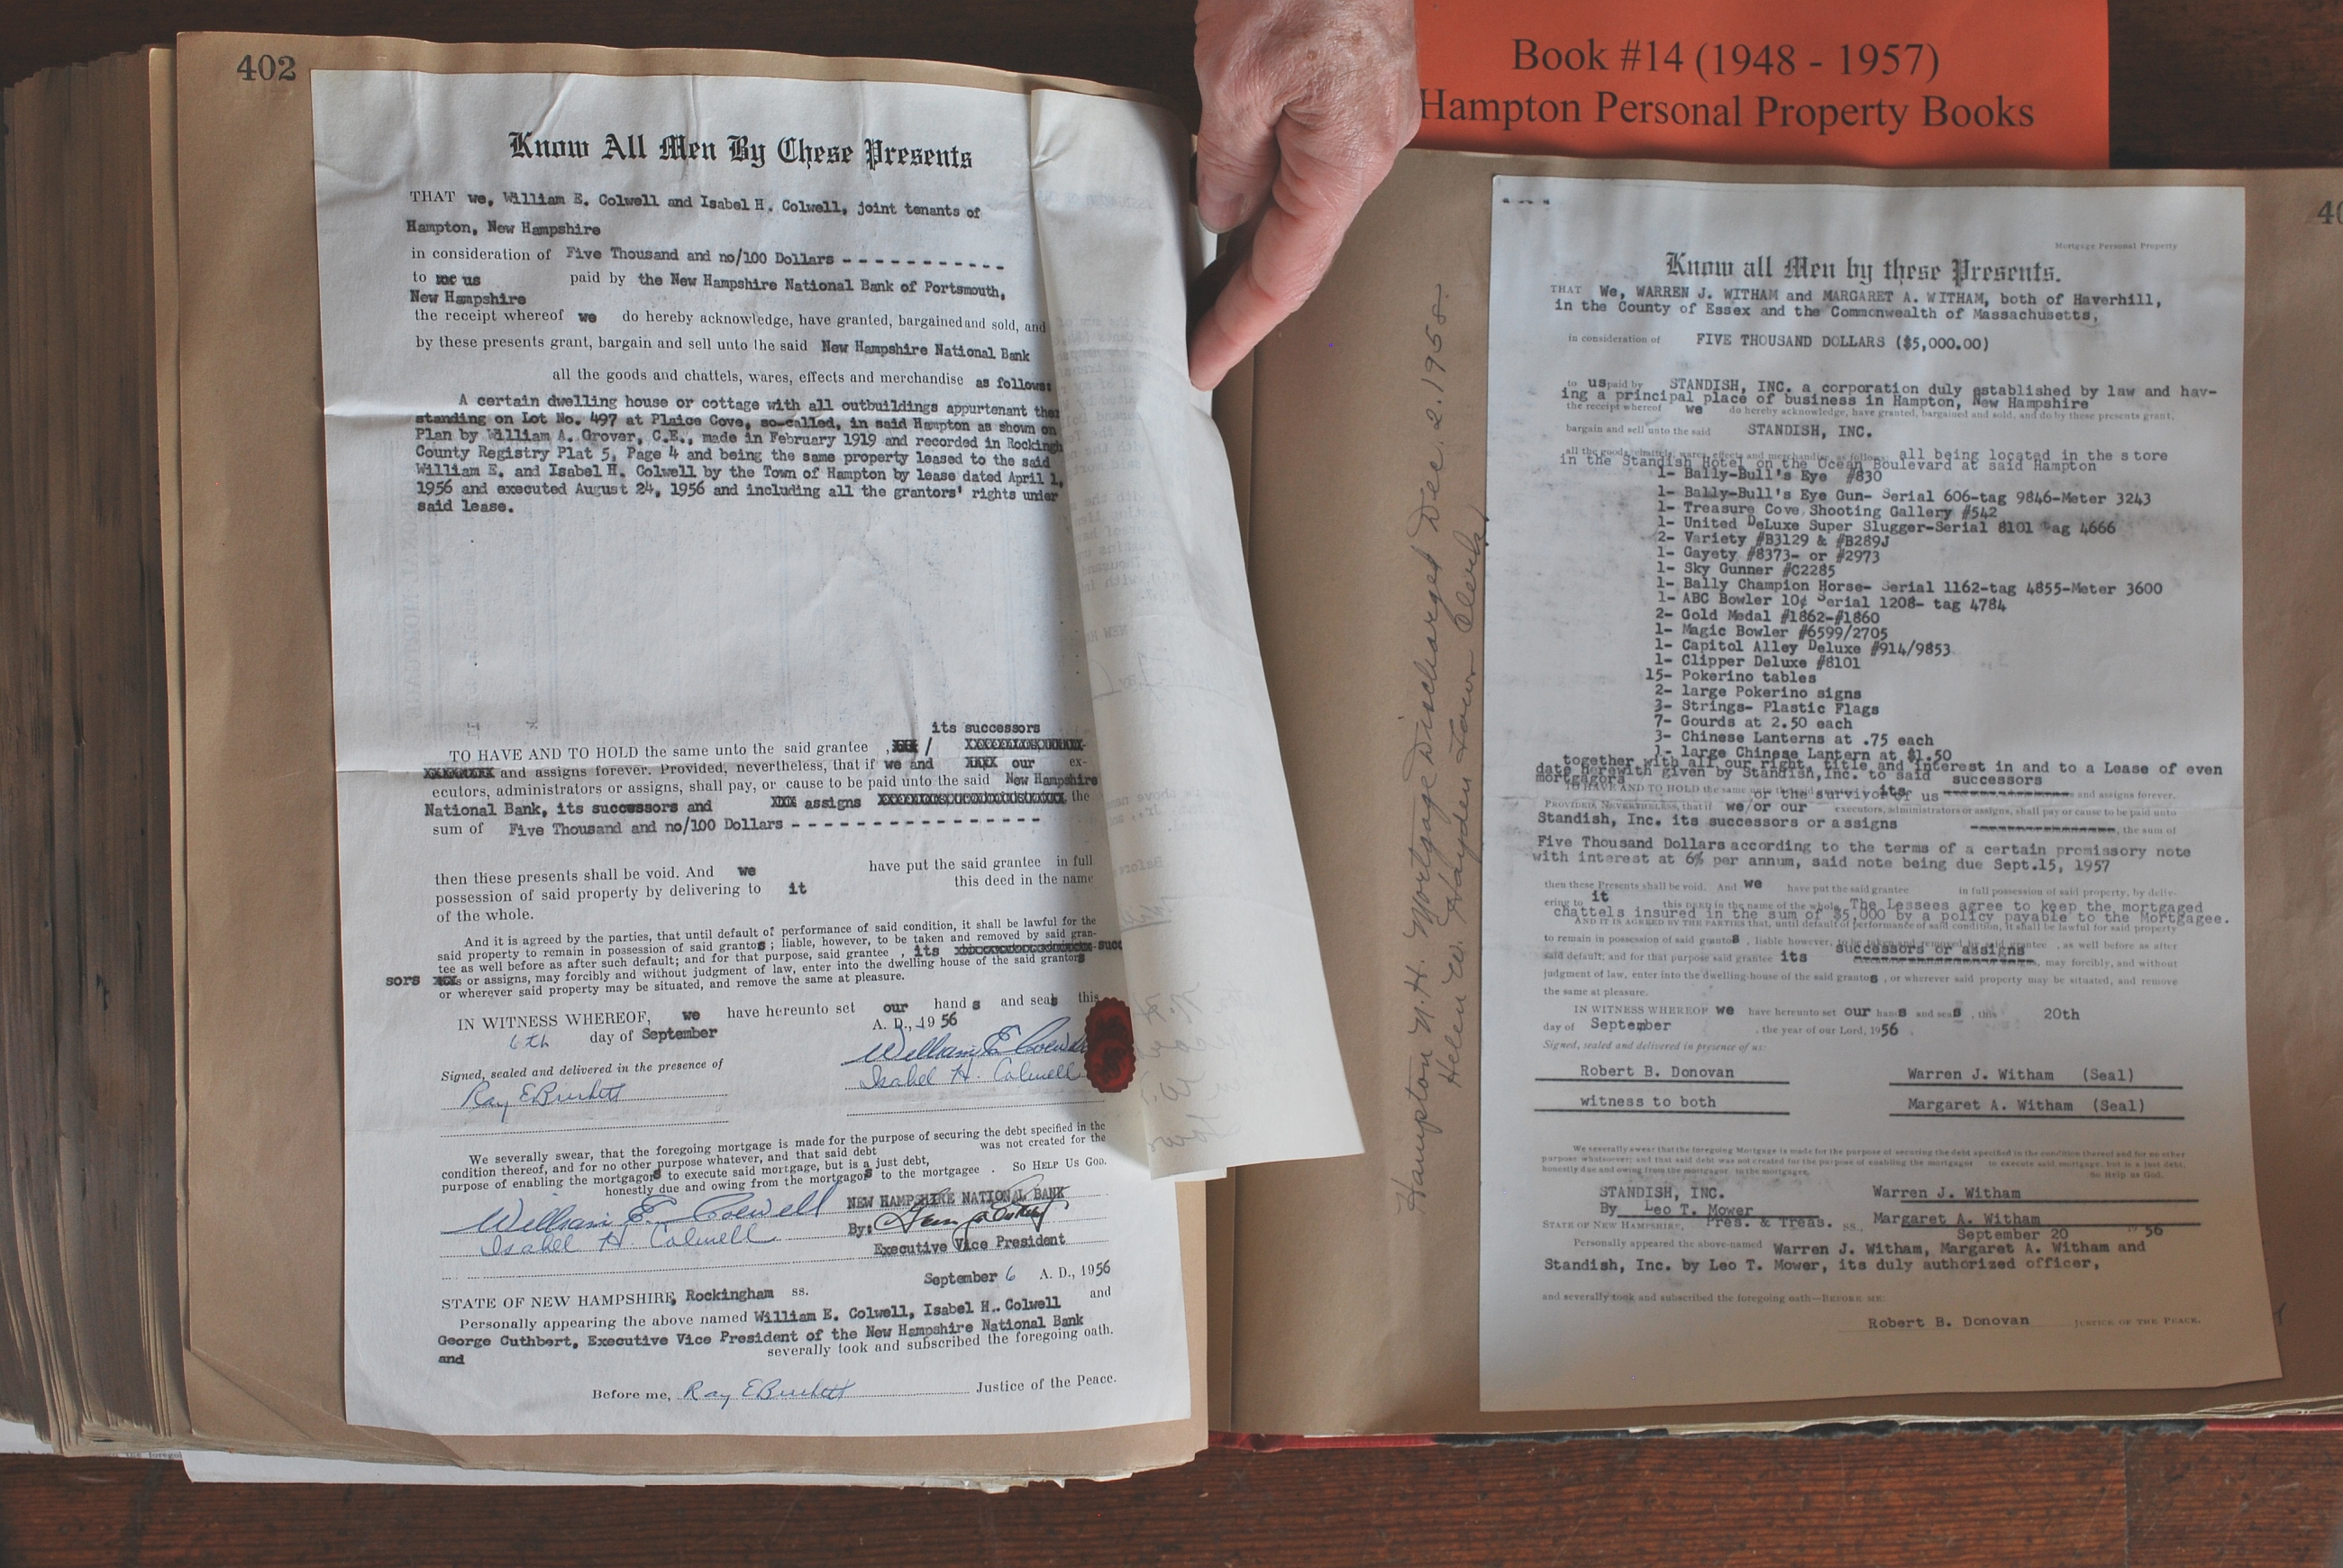 402
Book #14 (1948 - 1957)
Hampton Personal Property Books
Know All Men By These Presents
THAT we, William E. Colwell and Isabel H. Colwell, joint tenants of
Hampton, New Hampshire
in consideration of Five Thousand and no/100 Dollars - - - - - - - - - - - -
to us paid by the New Hampshire National Bank of Portsmouth,
New Hampshire
the receipt whereof we do hereby acknowledge, have granted, bargained and sold, and
by these presents grant, bargain and sell unto the said New Hampshire National Bank
all the goods and chattels, wares, effects and merchandise as follows:
A certain dwelling house or cottage with all outbuildings appurtenant
standing on Lot No. 497 at Plaice Cove, so-called, in said Hampton as shown on
Plan by William A. Grover, C.E., made in February 1919 and recorded in Rockingh
County Registry Plat 5, Page 4 and being the same property leased to the said
William E. and Isabel H. Colwell by the Town of Hampton by lease dated April 1,
1956 and executed August 24, 1956 and including all the grantors' rights under
said lease.
its successors
TO HAVE AND TO HOLD the same unto the said grantee , /
and assigns forever. Provided, nevertheless, that if we and our ex-
ecutors, administrators or assigns, shall pay, or cause to be paid unto the said New Hampshire
National Bank, its successors and assigns the
sum of Five Thousand and no/100 Dollars - - - - - - - - - - - - - - - -
then these presents shall be void. And we have put the said grantee in full
possession of said property by delivering to it this deed in the name
of the whole.
And it is agreed by the parties, that until default of performance of said condition, it shall be lawful for the
said property to remain in possession of said grantors; liable, however, to be taken and removed by said gran-
tee as well before as after such default; and for that purpose, said grantee , its succ
sors or assigns, may forcibly and without judgment of law, enter into the dwelling house of the said grantors
or wherever said property may be situated, and remove the same at pleasure.
IN WITNESS WHEREOF, we have hereunto set our hands and seals this
6th day of September A. D., 1956
Signed, sealed and delivered in the presence of
William E. Colwell
Isabel H. Colwell
Ray E Burkett
We severally swear, that the foregoing mortgage is made for the purpose of securing the debt specified in the
condition thereof, and for no other purpose whatever, and that said debt was not created for the
purpose of enabling the mortgagors to execute said mortgage, but is a just debt,
honestly due and owing from the mortgagors to the mortgagee . SO HELP US GOD.
William E. Colwell NEW HAMPSHIRE NATIONAL BANK
Isabel H. Colwell By:
Executive Vice President
September 6 A. D., 1956
STATE OF NEW HAMPSHIRE, Rockingham ss.
Personally appearing the above named William E. Colwell, Isabel H. Colwell and
George Cuthbert, Executive Vice President of the New Hampshire National Bank
and severally took and subscribed the foregoing oath.
Before me, Ray E Burkett Justice of the Peace.
Hampton N.H. Mortgage Discharged Dec. 2. 1958.
Helen W. Hayden Town Clerk
Mortgage Personal Property
Know all Men by these Presents.
THAT We, WARREN J. WITHAM and MARGARET A. WITHAM, both of Haverhill,
in the County of Essex and the Commonwealth of Massachusetts,
in consideration of FIVE THOUSAND DOLLARS ($5,000.00)
to us paid by STANDISH, INC. a corporation duly established by law and hav-
ing a principal place of business in Hampton, New Hampshire
the receipt whereof we do hereby acknowledge, have granted, bargained and sold, and do by these presents grant,
bargain and sell unto the said STANDISH, INC.
all the goods, chattels, wares, effects and merchandise, as follows, all being located in the store
in the Standish Hotel on the Ocean Boulevard at said Hampton
1- Bally-Bull's Eye #830
1- Bally-Bull's Eye Gun- Serial 606-tag 9846-Meter 3243
1- Treasure Cove Shooting Gallery #542
1- United DeLuxe Super Slugger-Serial 8101 tag 4666
2- Variety #B3129 & #B289J
1- Gayety #8373- or #2973
1- Sky Gunner #C2285
1- Bally Champion Horse- Serial 1162-tag 4855-Meter 3600
1- ABC Bowler 10¢ Serial 1208- tag 4784
2- Gold Medal #1862-#1860
1- Magic Bowler #6599/2705
1- Capitol Alley Deluxe #914/9853
1- Clipper Deluxe #8101
15- Pokerino tables
2- large Pokerino signs
3- Strings- Plastic Flags
7- Gourds at 2.50 each
3- Chinese Lanterns at .75 each
1- large Chinese Lantern at $1.50
together with all our right, title and interest in and to a Lease of even
date herewith given by Standish,Inc. to said
mortgagors successors
TO HAVE AND TO HOLD its and assigns forever.
or the survivor of us
PROVIDED NEVERTHELESS, that if we/or our executors, administrators or assigns, shall pay or cause to be paid unto
Standish, Inc. its successors or assigns , the sum of
Five Thousand Dollars according to the terms of a certain promissory note
with interest at 6% per annum, said note being due Sept.15, 1957
then these Presents shall be void. And we have put the said grantee in full possession of said property, by deliv-
ering to it this DEED in the name of the whole. The Lessees agree to keep the mortgaged
chattels insured in the sum of $5,000 by a policy payable to the Mortgagee.
AND IT IS AGREED BY THE PARTIES, that, until default of performance of said condition, it shall be lawful for said property
to remain in possession of said grantors , liable however, to be taken and removed by said grantee , as well before as after
successors or assigns
said default; and for that purpose said grantee its , may forcibly, and without
judgment of law, enter into the dwelling-house of the said grantors , or wherever said property may be situated, and remove
the same at pleasure.
IN WITNESS WHEREOF we have hereunto set our hands and seals , this 20th
day of September , the year of our Lord, 1956 .
Signed, sealed and delivered in presence of us:
Robert B. Donovan Warren J. Witham (Seal)
witness to both Margaret A. Witham (Seal)
We severally swear that the foregoing Mortgage is made for the purpose of securing the debt specified in the condition thereof and for no other
purpose whatsoever; and that said debt was not created for the purpose of enabling the mortgagors to execute said mortgage, but is a just debt,
honestly due and owing from the mortgagors to the mortgagee.
So Help us God.
STANDISH, INC. Warren J. Witham
By Leo T. Mower
Pres. & Treas. Margaret A. Witham
STATE OF NEW HAMPSHIRE, SS. September 20 1956
Personally appeared the above-named Warren J. Witham, Margaret A. Witham and
Standish, Inc. by Leo T. Mower, its duly authorized officer,
and severally took and subscribed the foregoing oath—BEFORE ME:
Robert B. Donovan JUSTICE OF THE PEACE.